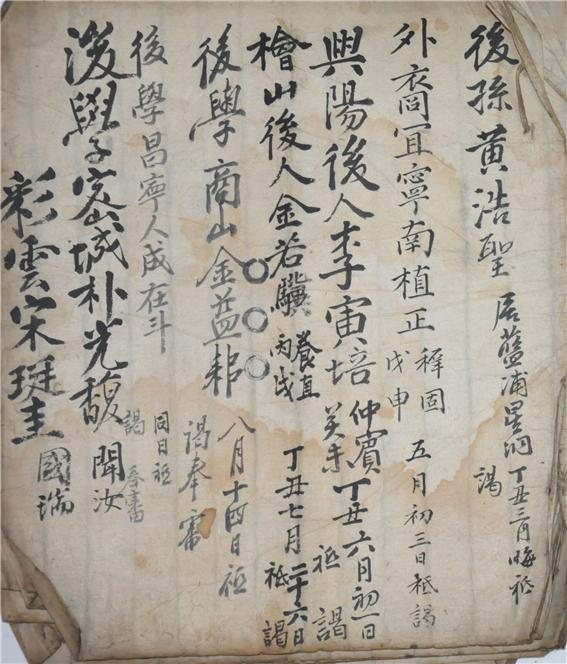 後孫黃浩聖 居藍浦星洞 丁丑三月晦祗謁
外裔宜寧南植正 穉固 戊申 五月初三日祗謁
興陽後人李寅培 仲賓 癸未 丁丑六月初一日祗謁
檜山後人金若驥 養直 丙戌 丁丑七月二十六日祗謁
後學商山金益 八月十四日祗謁奉審
後學昌寧人成在斗 同日祗謁奉審
後學密城朴光馥 聞汝
彩雲宋珽圭 國瑞